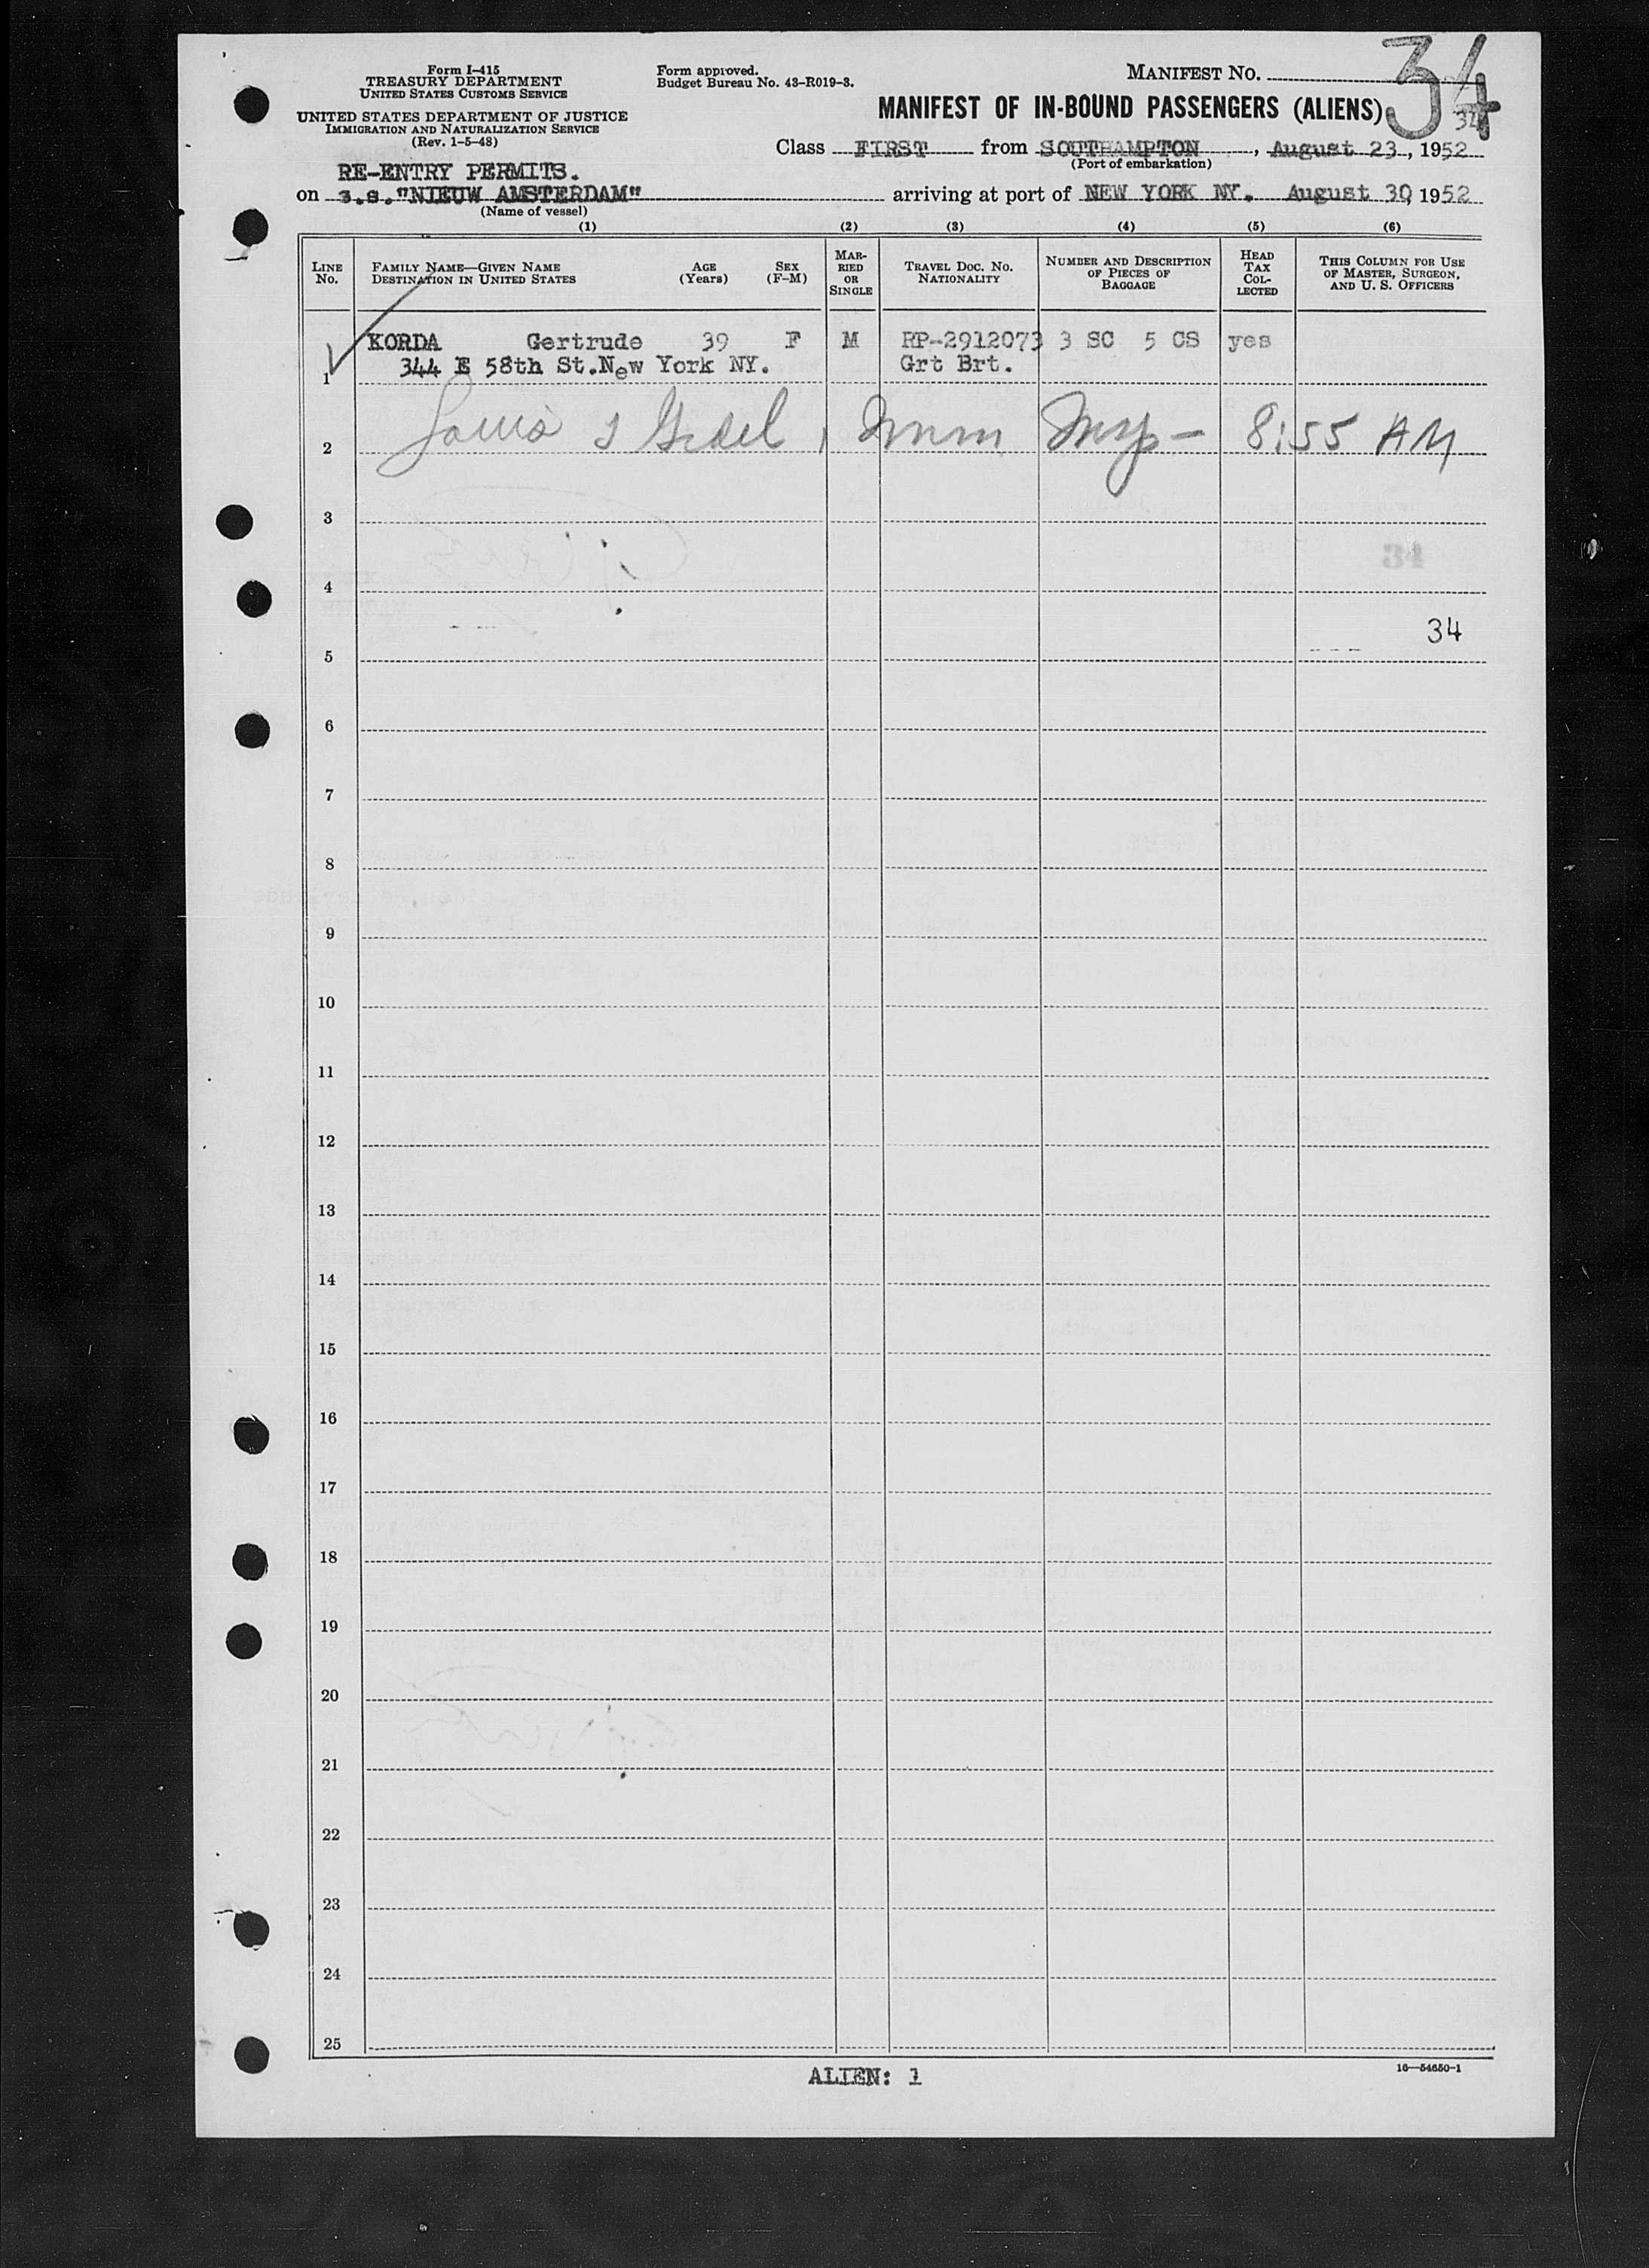 Form I-415
TREASURY DEPARTMENT
UNITED STATES CUSTOMS SERVICE
UNITED STATES DEPARTMENT OF JUSTICE
IMMIGRATION AND NATURALIZATION SERVICE
(Rev. 1-5-48)
Form approved.
Budget Bureau No. 43-R019-3.
MANIFEST NO. 34
MANIFEST OF IN-BOUND PASSENGERS (ALIENS)
34
Class FIRST from SOUTHAMPTON, August 23, 1952
(Port of embarkation)
RE-ENTRY PERMITS.
on s.s."NIEUW AMSTERDAM" arriving at port of NEW YORK NY. August 30, 1952
(Name of vessel)
(1) (2) (3) (4) (5) (6)
LINE No.
FAMILY NAME—GIVEN NAME
DESTINATION IN UNITED STATES
AGE (Years)
SEX (F-M)
MARRIED OR SINGLE
TRAVEL DOC. NO. NATIONALITY
NUMBER AND DESCRIPTION OF PIECES OF BAGGAGE
HEAD TAX COLLECTED
THIS COLUMN FOR USE OF MASTER, SURGEON, AND U. S. OFFICERS
KORDA Gertrude 39 F M RP-2912073 3 SC 5 CS yes
1 344 E 58th St.New York NY. Grt Brt.
2 Insp- 8:55 AM
3
4
34
5
6
7
8
9
10
11
12
13
14
15
16
17
18
19
20
21
22
23
24
25
ALIEN: 1
16-54650-1